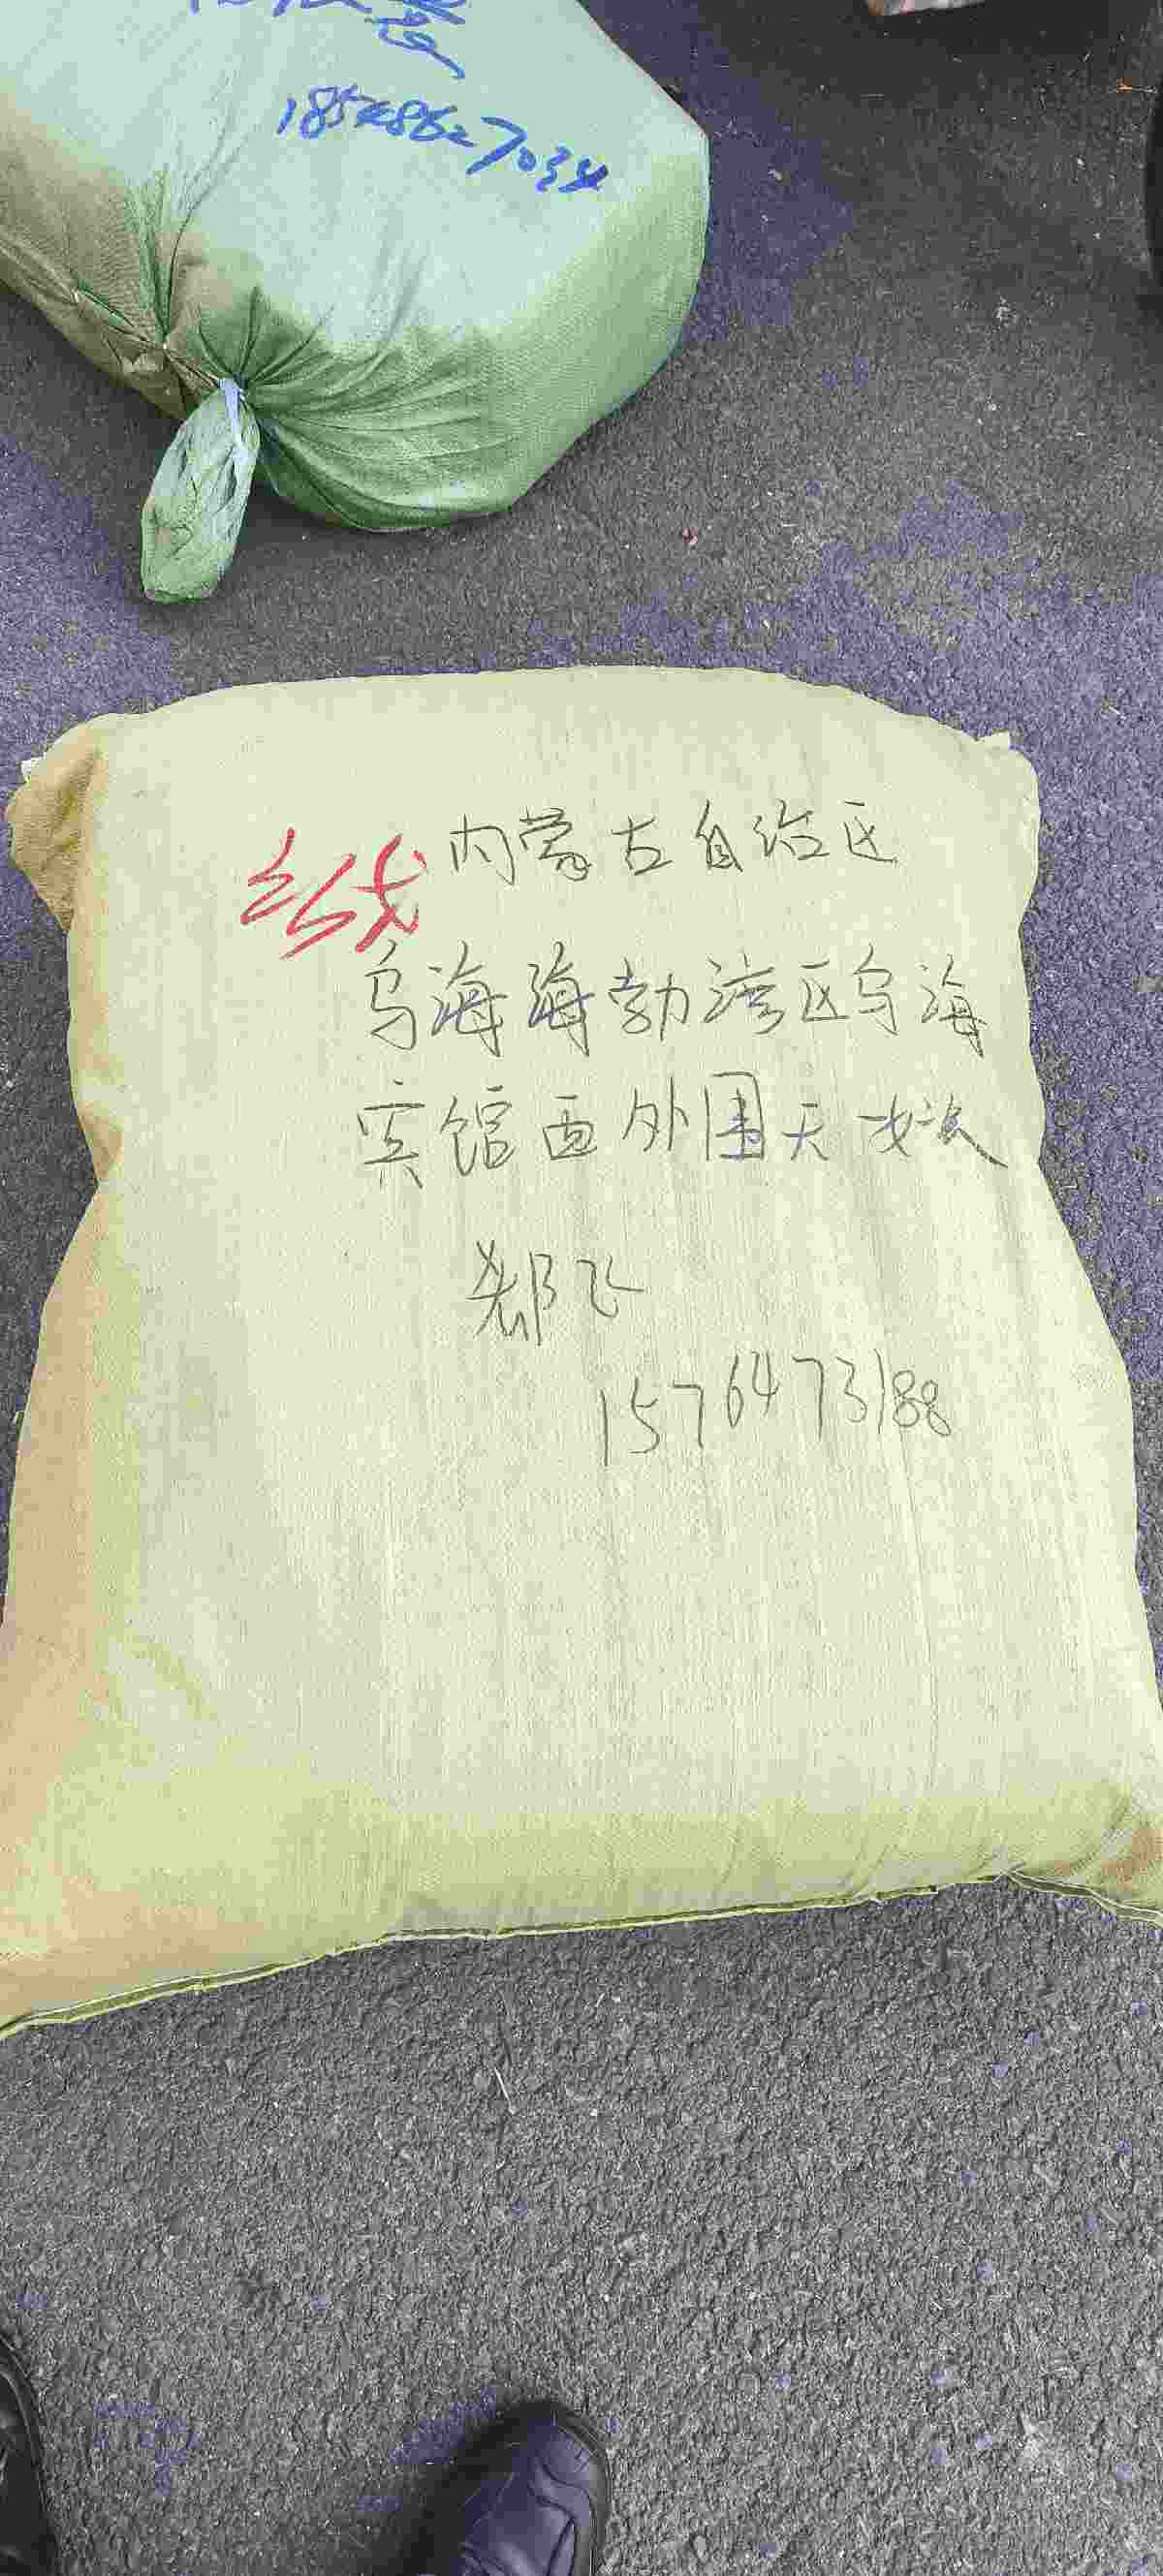 18548627034
内蒙古自治区
乌海海勃湾区乌海
宾馆西外围天
郝飞
15764773188